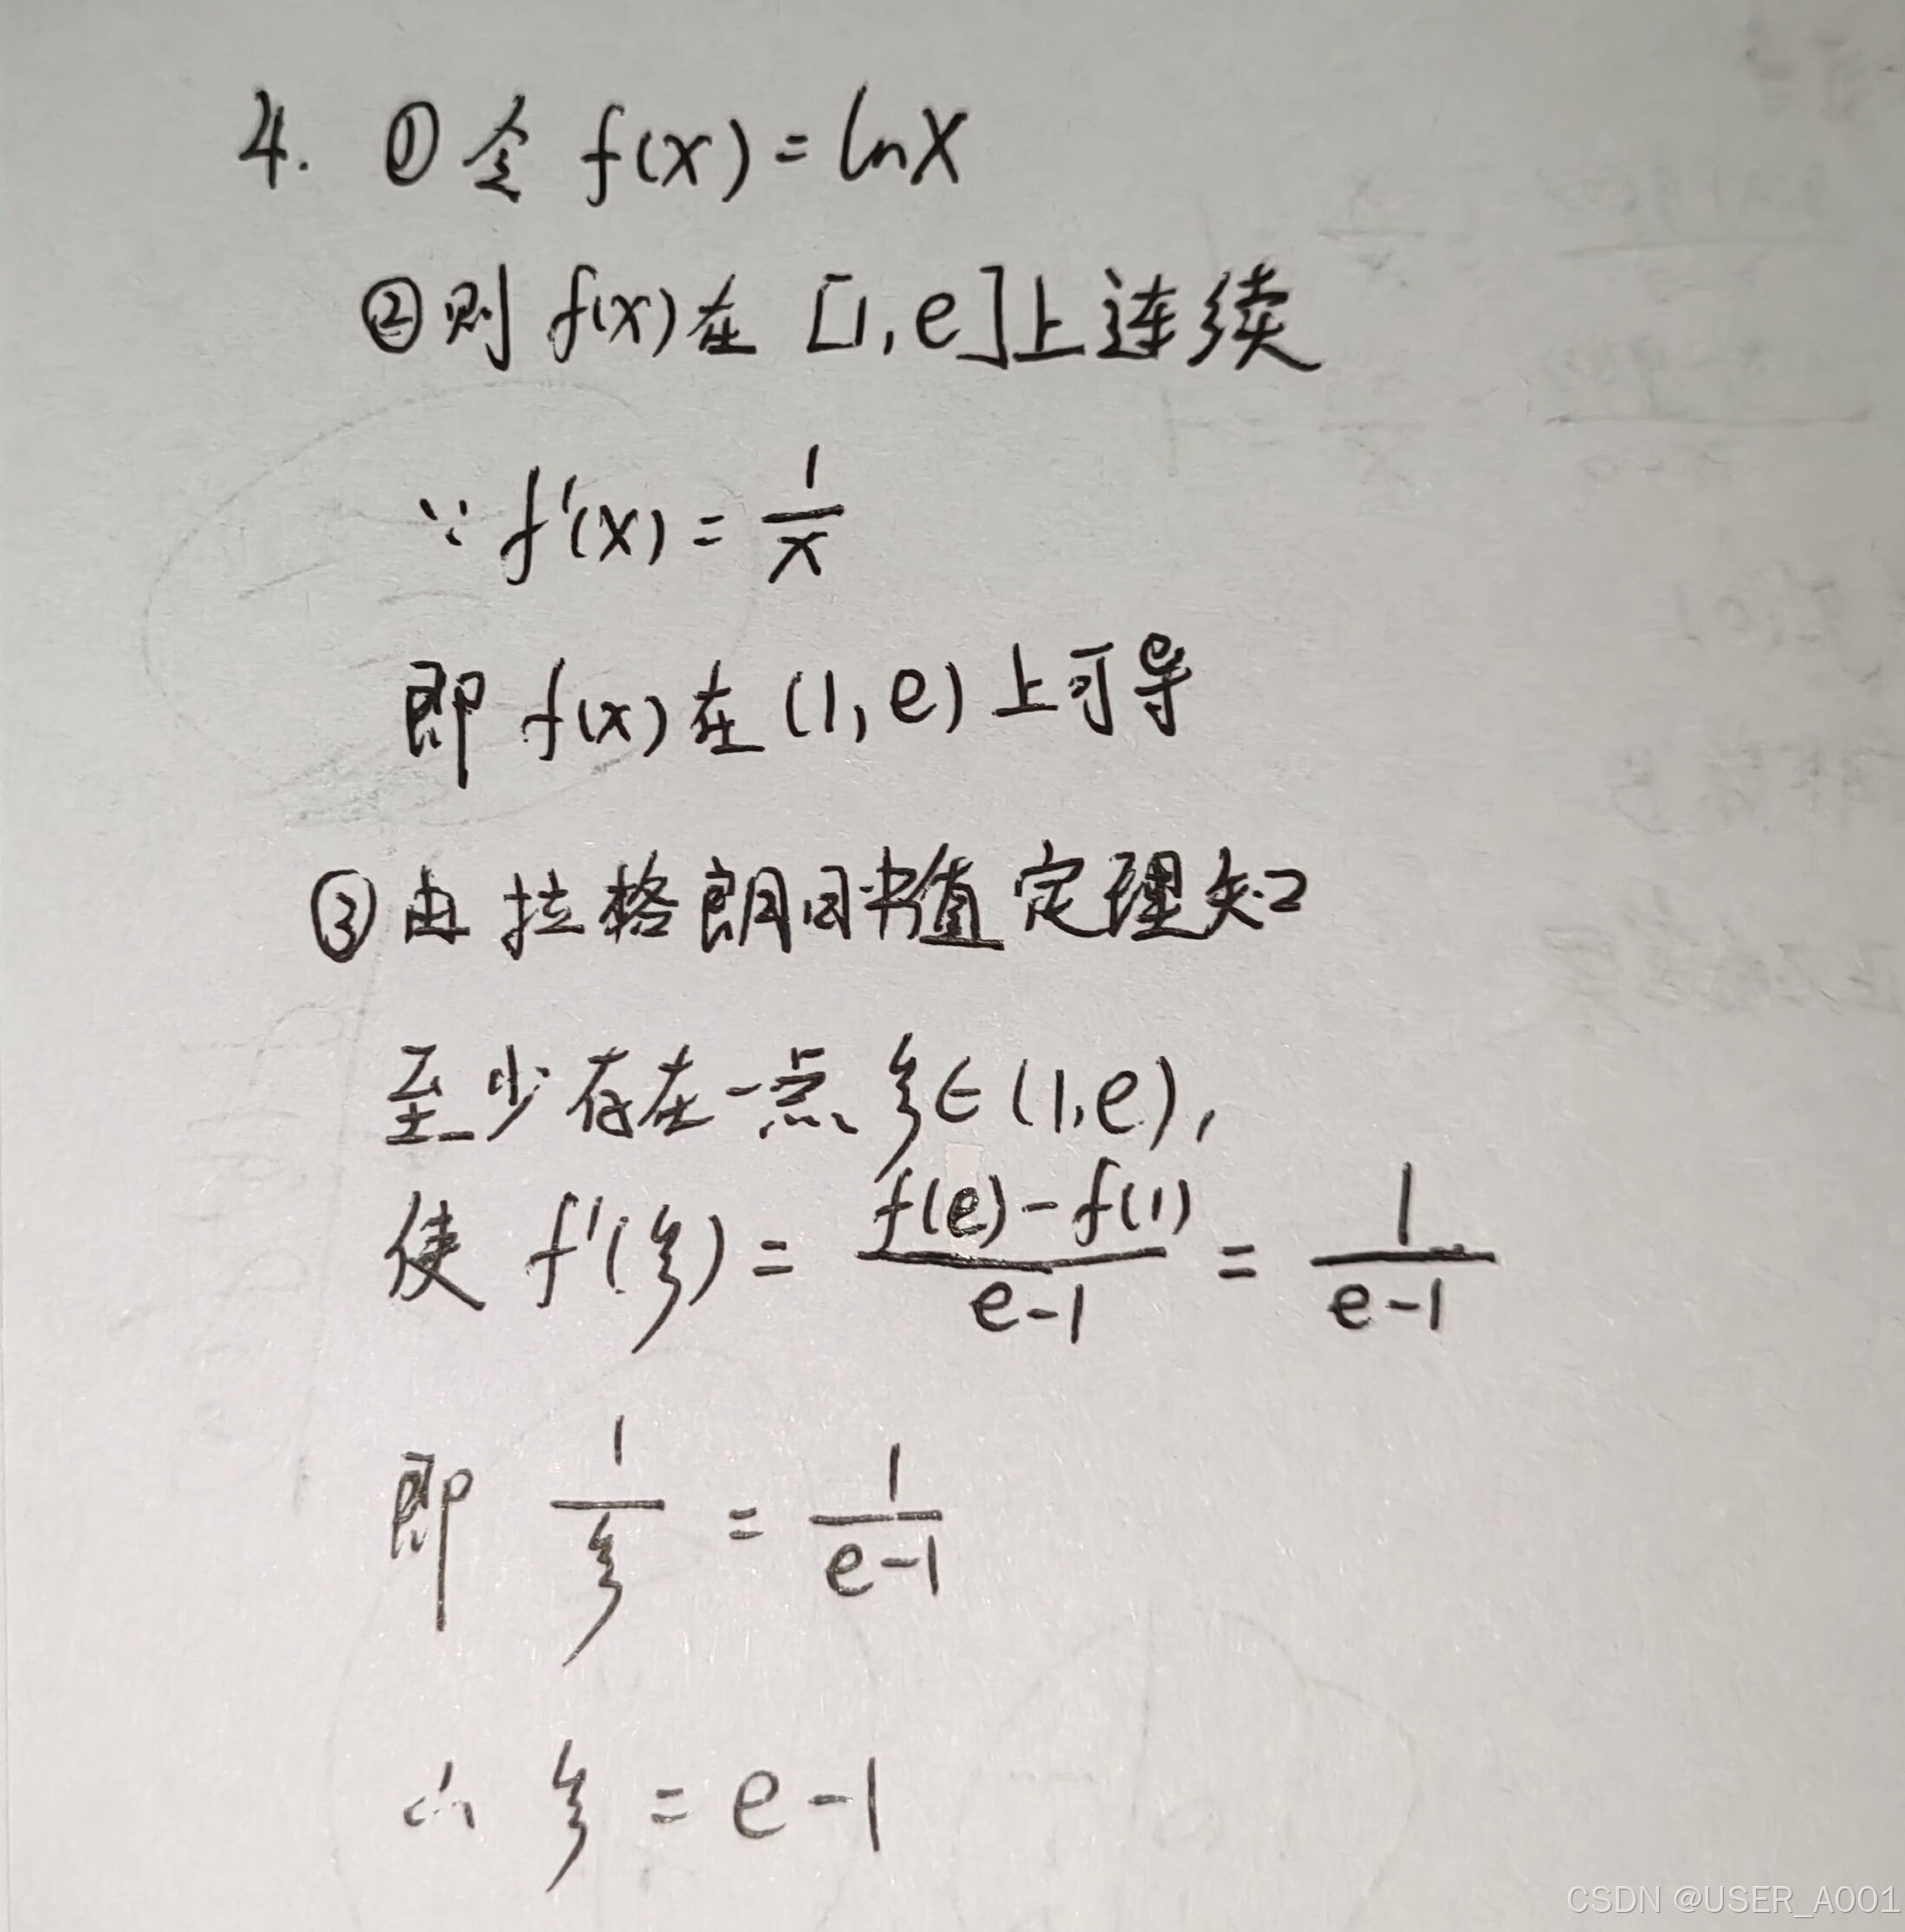 4. ①令 f(x)=lnx
②则 f(x)在 [1,e]上连续
∵ f'(x)=1/x
即 f(x)在(1,e)上可导
③由拉格朗日中值定理知
至少存在一点 ξ∈(1,e),
使 f'(ξ)=(f(e)-f(1))/(e-1)=1/(e-1)
即 1/ξ=1/(e-1)
∴ ξ=e-1
CSDN @USER_A001